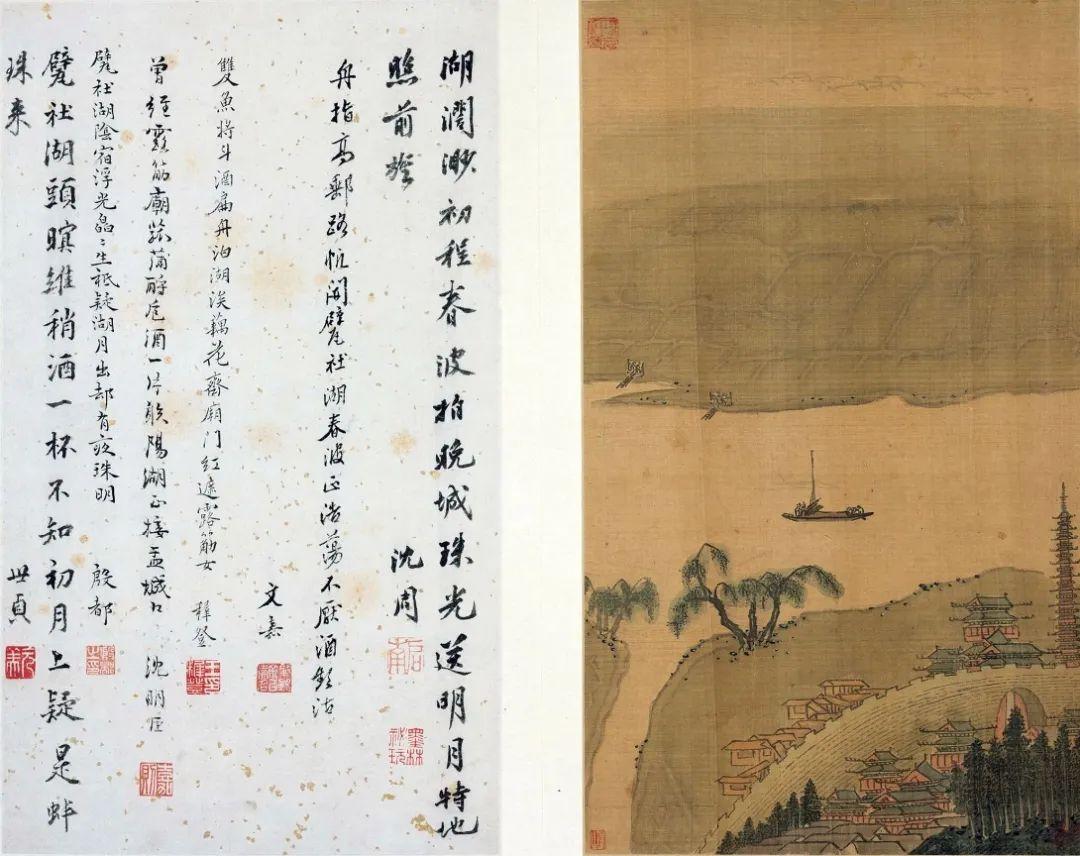 湖濶渺初程春波拍晚城珠光送明月特地
照前旌 沈周
石田
墨林祕玩
舟指高郵路忻開甓社湖春波正浩蕩不厭酒頻沽
文嘉
雙魚將斗酒扁舟泊湖涘藕花齋廟門紅遮露筋女 穉登
曾經露筋廟菰蒲酹卮酒一片睒陽湖正接盂城口 沈明臣
甓社湖陰宿浮光晶〻生祗疑湖月出却有夜珠明 殷都
甓社湖頭暝維稍酒一杯不知初月上疑是蚌
珠来 世貞